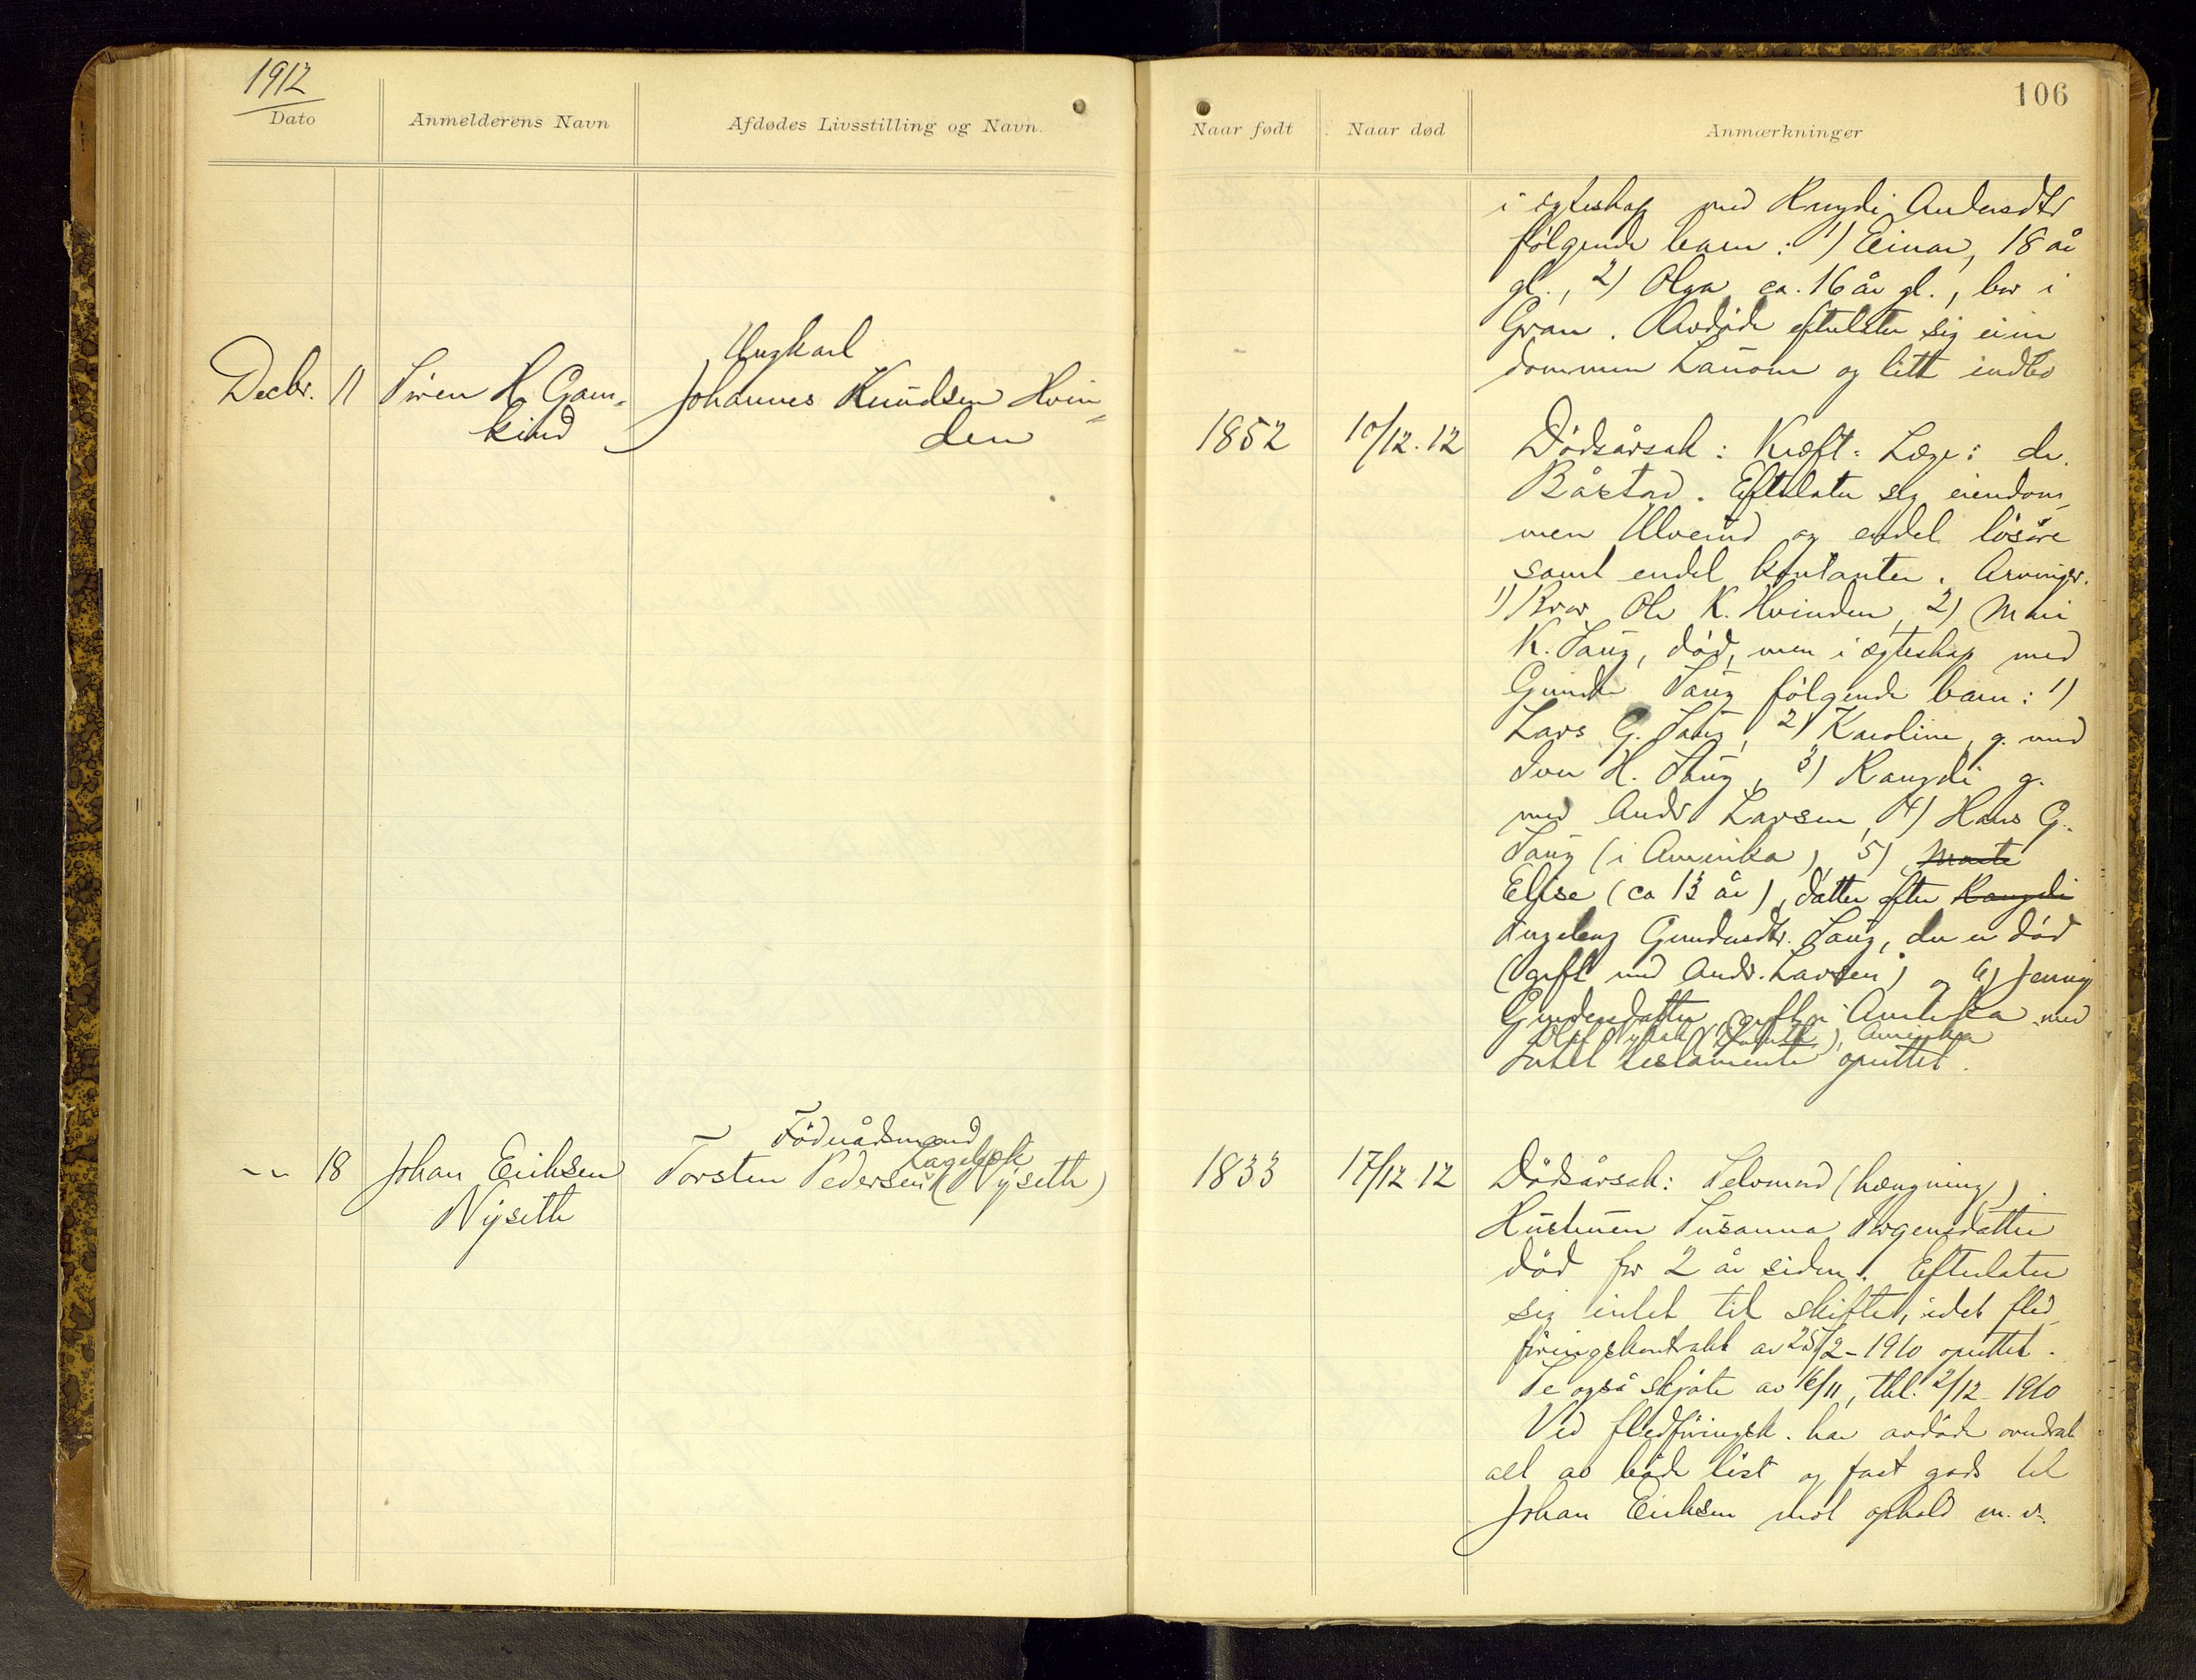 1912
106
Dato
Anmelderens Navn
Afdødes Livsstilling og Navn.
Naar født
Naar død
Anmærkninger
i egteskap med Rangdi Andersdtr
følgende barn: 1) Einar, 18 år
gl., 2) Olga ca. 16 år gl., bor i
Gran. Avdøde efterlater sig eien
dommen og litt indbo
Decbr. 11
Sören H. Gam-
kind
Ungkarl
Johannes Knudsen Hvin-
den
1852
10/12.12
Dödsårsak: Kræft. Læge: dr.
Bårstad. Efterlater sig eiendom-
men Ulverud og endel lösöre
samt endel kontanter. Arvinger.
1) Bror Ole K. Hvinden, 2) Mari
K. Saug, död, men i egteskap med
Gunder Saug følgende barn: 1)
Lars G. Saug, 2) Karoline, g. med
Iver H. Saug, 3) Rangdi g.
med Andr Larsen, 4) Hans G.
Saug (i Amerika), 5) Marte
Elise (ca 13 år), datter efter Rangdi
Ingeborg Gundersdtr. Saug, der er död
(gift med Andr. Larsen) og 6) Jenny
Gundersdatter, gift i Amerika med
Amerika
Intet testamente oprettet.
-"- 18
Johan Eriksen
Nyseth
Föderådsmand
Lageløk
Torsten Pedersen (Nyseth)
1833
17/12 12
Dödsårsak: Selvmord (hængning).
Hustruen Susanna Jørgensdatter
död for 2 år siden. Efterlater
sig intet til skifte, idet fled-
föringskontrakt av 25/2-1910 oprettet.
Se også skjöte av 16/11, thl. 2/12-1910
Ved fledföringsk. har avdöde overdrat
alt av både löst og fast gods til
Johan Eriksen mot ophold m.v.